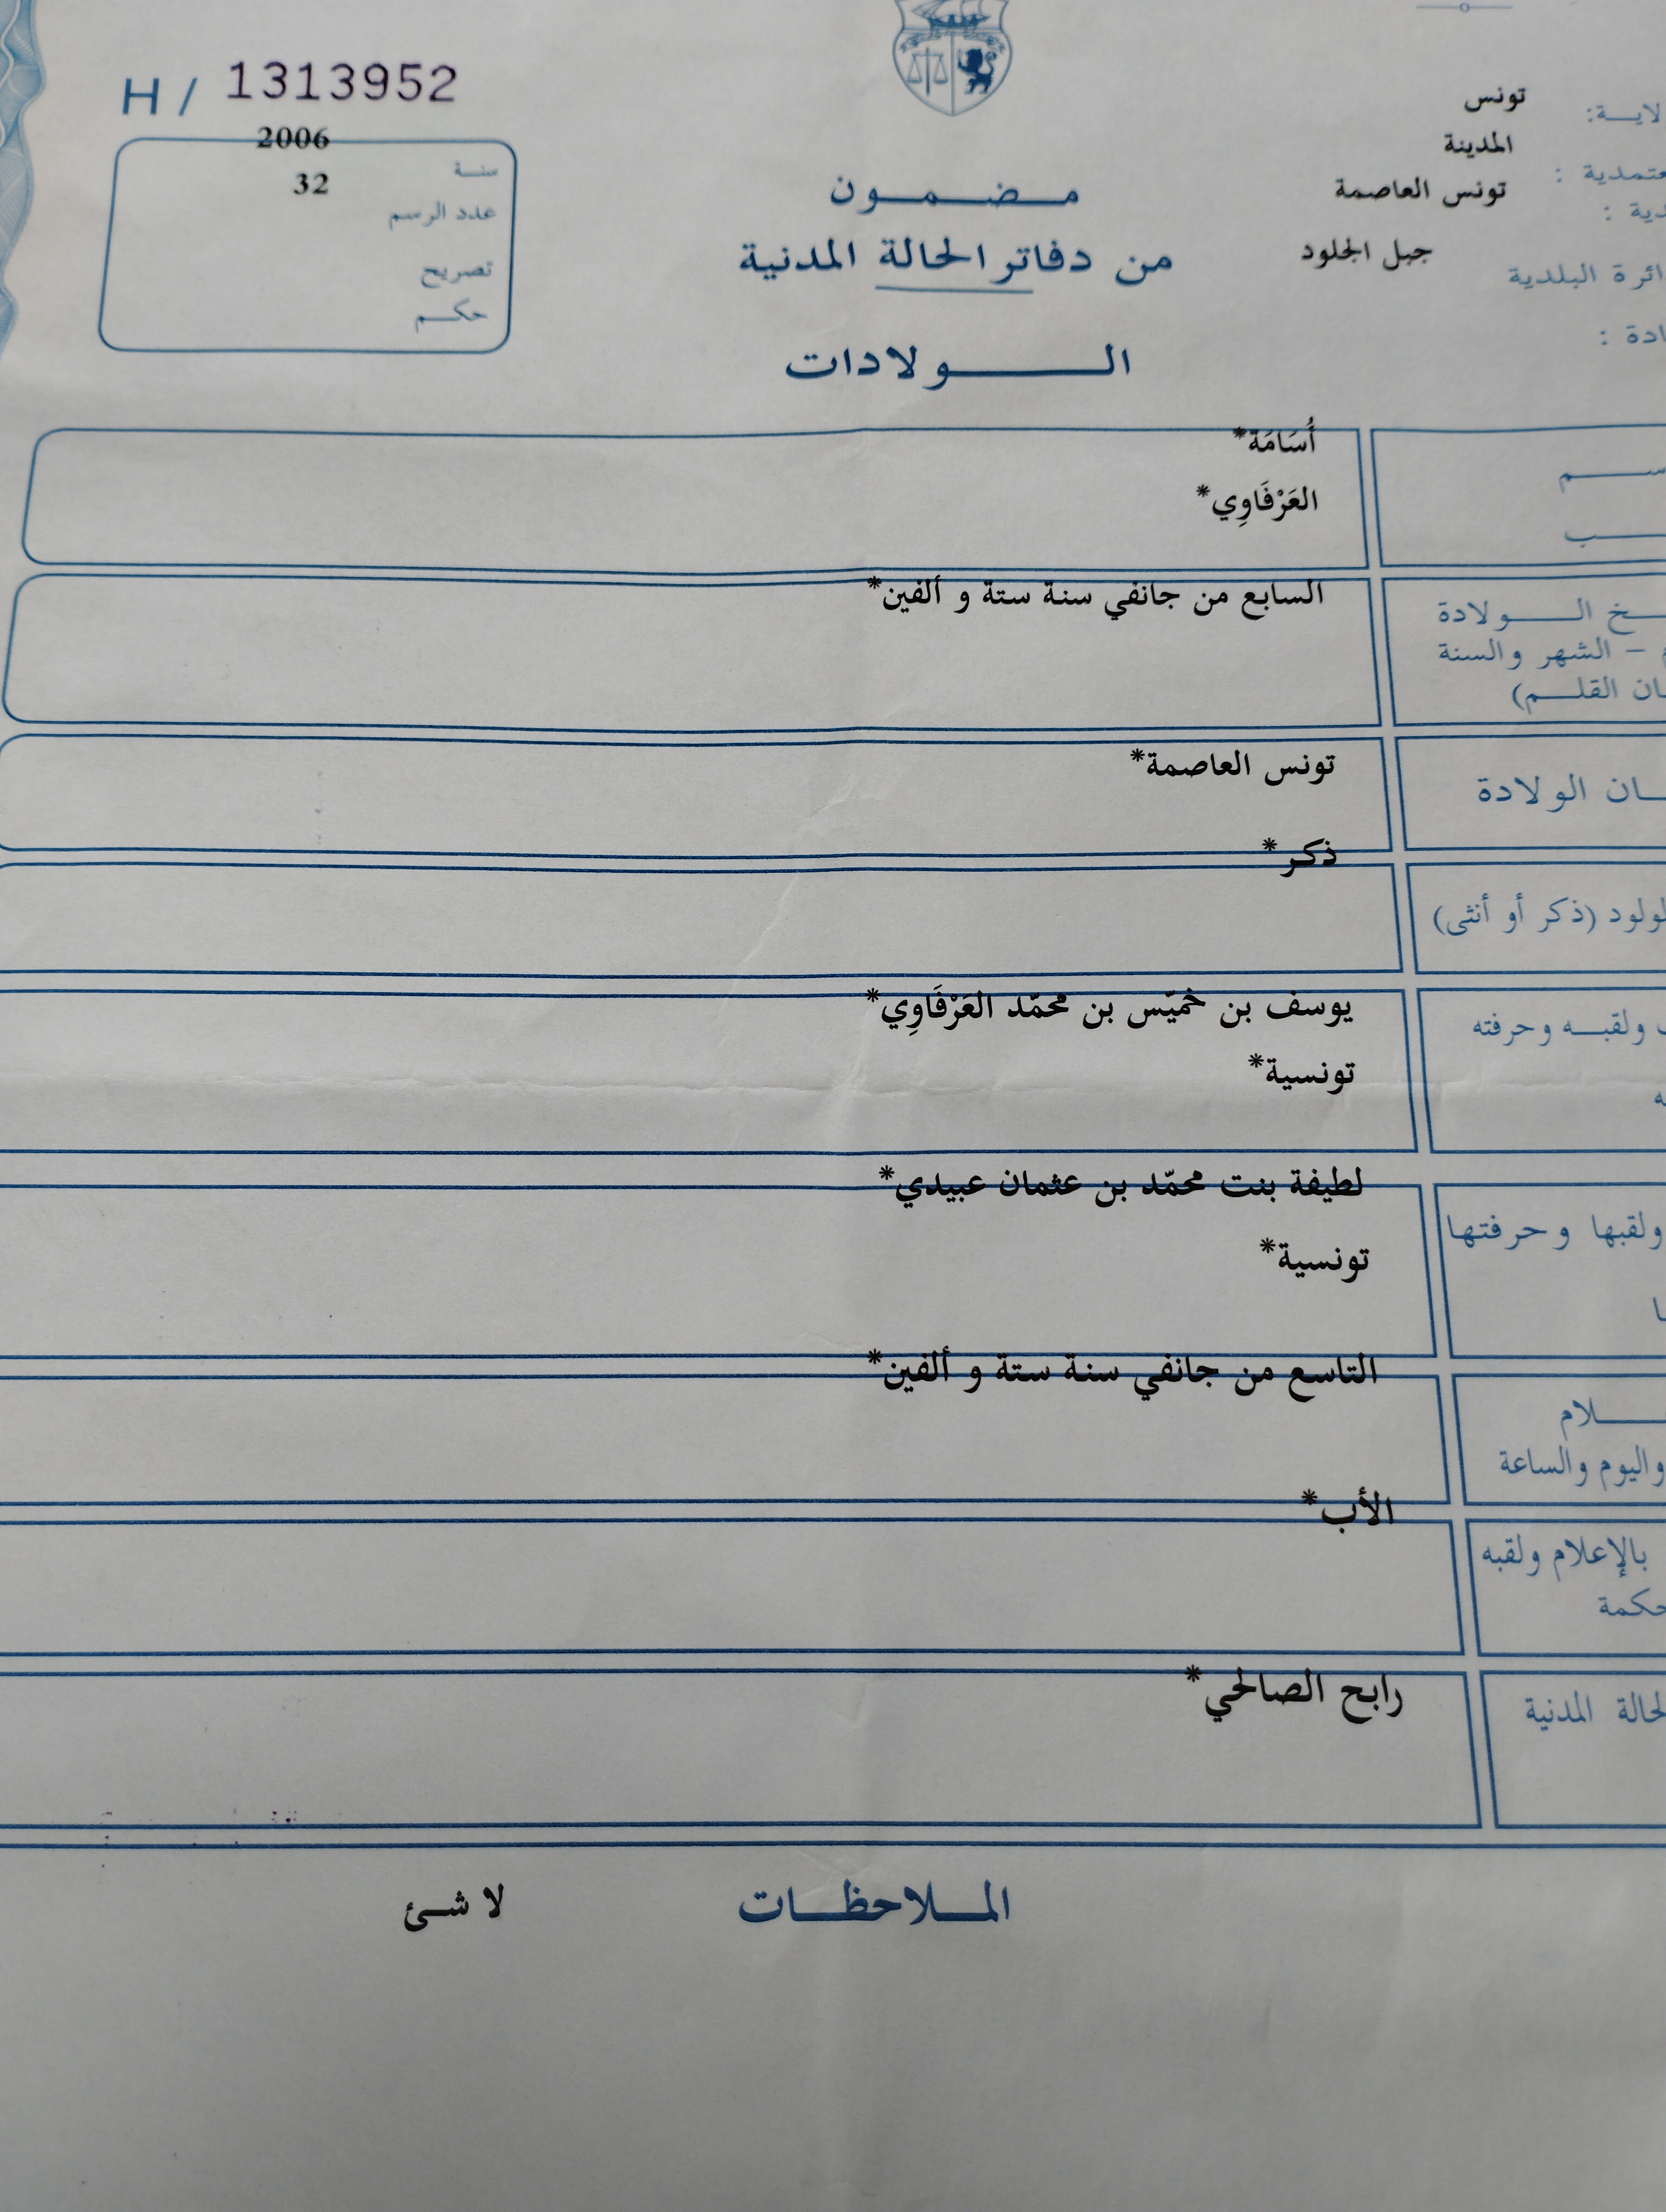 H / 1313952
تونس
المدينة
تونس العاصمة
جبل الجلود
ائرة البلدية
2006
سنة
32
عدد الرسم
تصريح
حكم
مضمون
من دفاتر الحالة المدنية
الولادات
أُسَامَة*
العَرْفَاوِي*
السابع من جانفي سنة ستة و ألفين*
خ الولادة
م – الشهر والسنة
ان القلم)
تونس العاصمة*
ان الولادة
ذكر*
ولود (ذكر أو أنثى)
يوسف بن خميّس بن محمّد العَرْفَاوِي*
ولقبه وحرفته
تونسية*
لطيفة بنت محمّد بن عثمان عبيدي*
ولقبها وحرفتها
تونسية*
التاسع من جانفي سنة ستة و ألفين*
لام
واليوم والساعة
الأب*
بالإعلام ولقبه
حكمة
رابح الصالحي*
لحالة المدنية
الملاحظات لا شئ